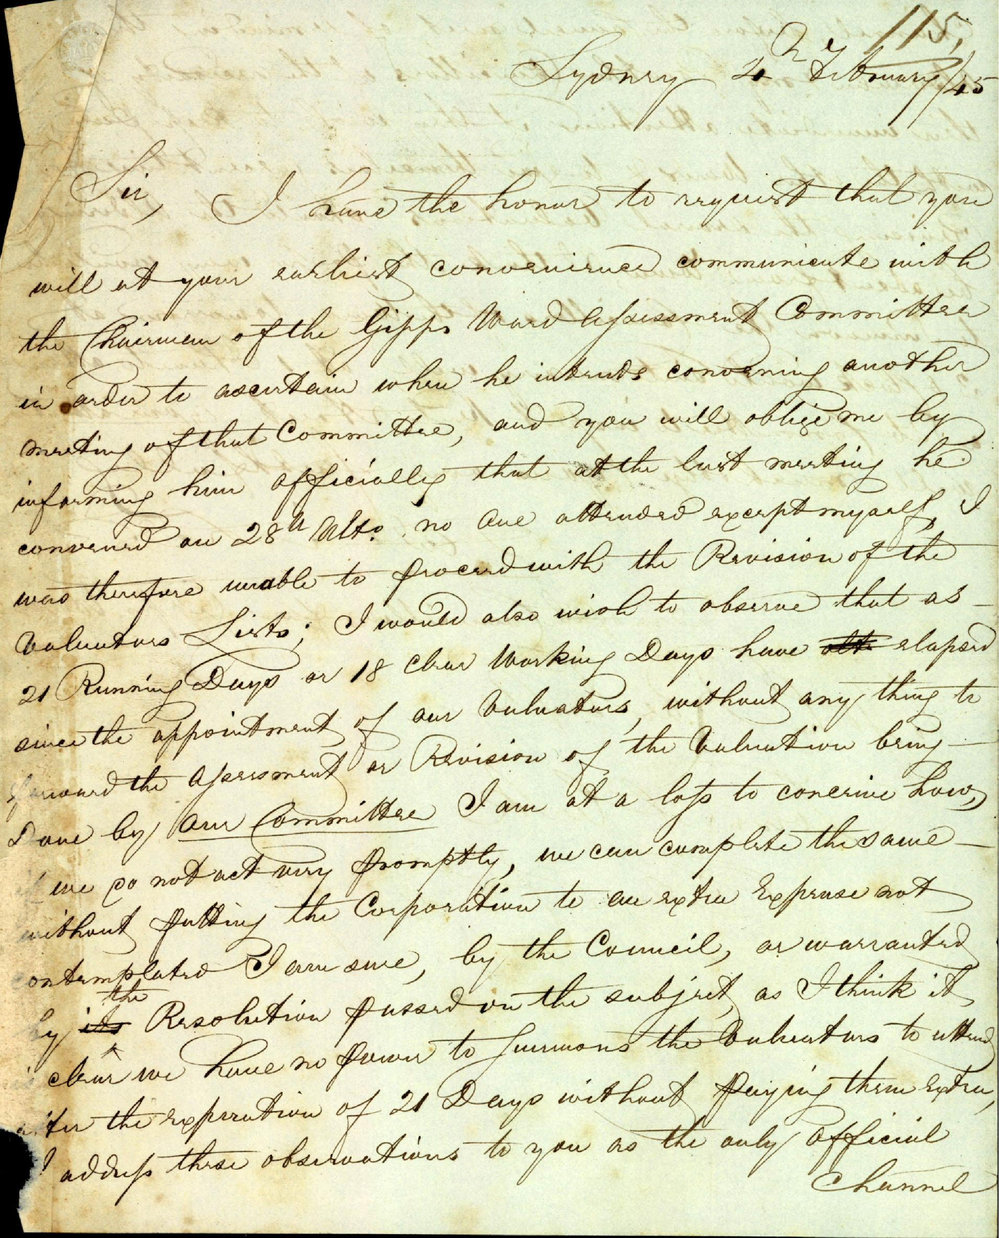 115.
Sydney 4th February/45
Sir, I have the honor to request that you
will at your earliest convenience communicate with
the Chairman of the Gipps Ward Assessment Committee
in order to ascertain when he intends convening another
meeting of that Committee, and you will oblige me by
informing him officially that at the last meeting he
convened on 28th Ulto. no one attended except myself, I
was therefore unable to proceed with the Revision of the
Valuators Lists; I would also wish to observe that as
21 Running Days or 18 clear Working Days have elapsed
since the appointment of our Valuators, without any thing to
forward the Assessment or Revision of the Valuation being
Done by our Committee I am at a loss to conceive how,
if we do not act very promptly, we can complete the same
without putting the Corporation to an extra Expense not
contemplated I am sure, by the Council, or warranted
by the Resolution passed on the subject, as I think it
clear we have no power to summons the Valuators to attend
after the expiration of 21 Days without paying them extra,
I address these observations to you as the only official
Channel